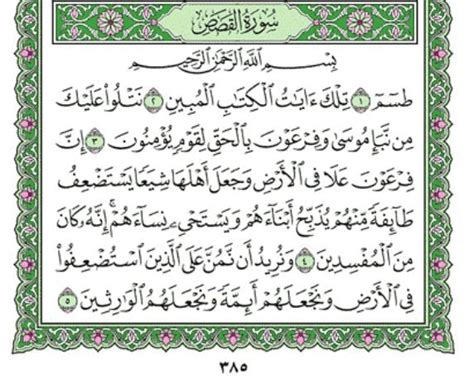 سُورَةُ القَصَصِ
بِسْمِ ٱللَّهِ ٱلرَّحْمَٰنِ ٱلرَّحِيمِ
طسٓمٓ ١ تِلْكَ ءَايَٰتُ ٱلْكِتَٰبِ ٱلْمُبِينِ ٢ نَتْلُوا۟ عَلَيْكَ
مِن نَّبَإِ مُوسَىٰ وَفِرْعَوْنَ بِٱلْحَقِّ لِقَوْمٍ يُؤْمِنُونَ ٣ إِنَّ
فِرْعَوْنَ عَلَا فِى ٱلْأَرْضِ وَجَعَلَ أَهْلَهَا شِيَعًا يَسْتَضْعِفُ
طَآئِفَةً مِّنْهُمْ يُذَبِّحُ أَبْنَآءَهُمْ وَيَسْتَحْىِۦ نِسَآءَهُمْ ۚ إِنَّهُۥ كَانَ
مِنَ ٱلْمُفْسِدِينَ ٤ وَنُرِيدُ أَن نَّمُنَّ عَلَى ٱلَّذِينَ ٱسْتُضْعِفُوا۟
فِى ٱلْأَرْضِ وَنَجْعَلَهُمْ أَئِمَّةً وَنَجْعَلَهُمُ ٱلْوَٰرِثِينَ ٥
٣٨٥